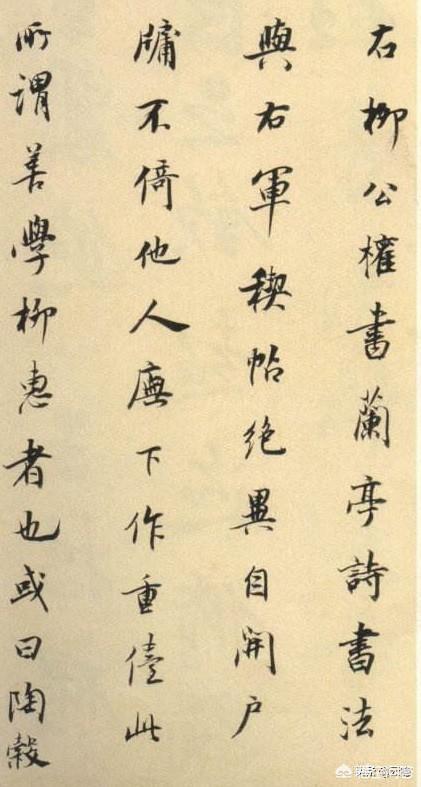 右柳公權書蘭亭詩書法
與右軍稧帖絕異自開户
牖不倚他人廡下作重儓此
所謂善學柳惠者也或曰陶穀